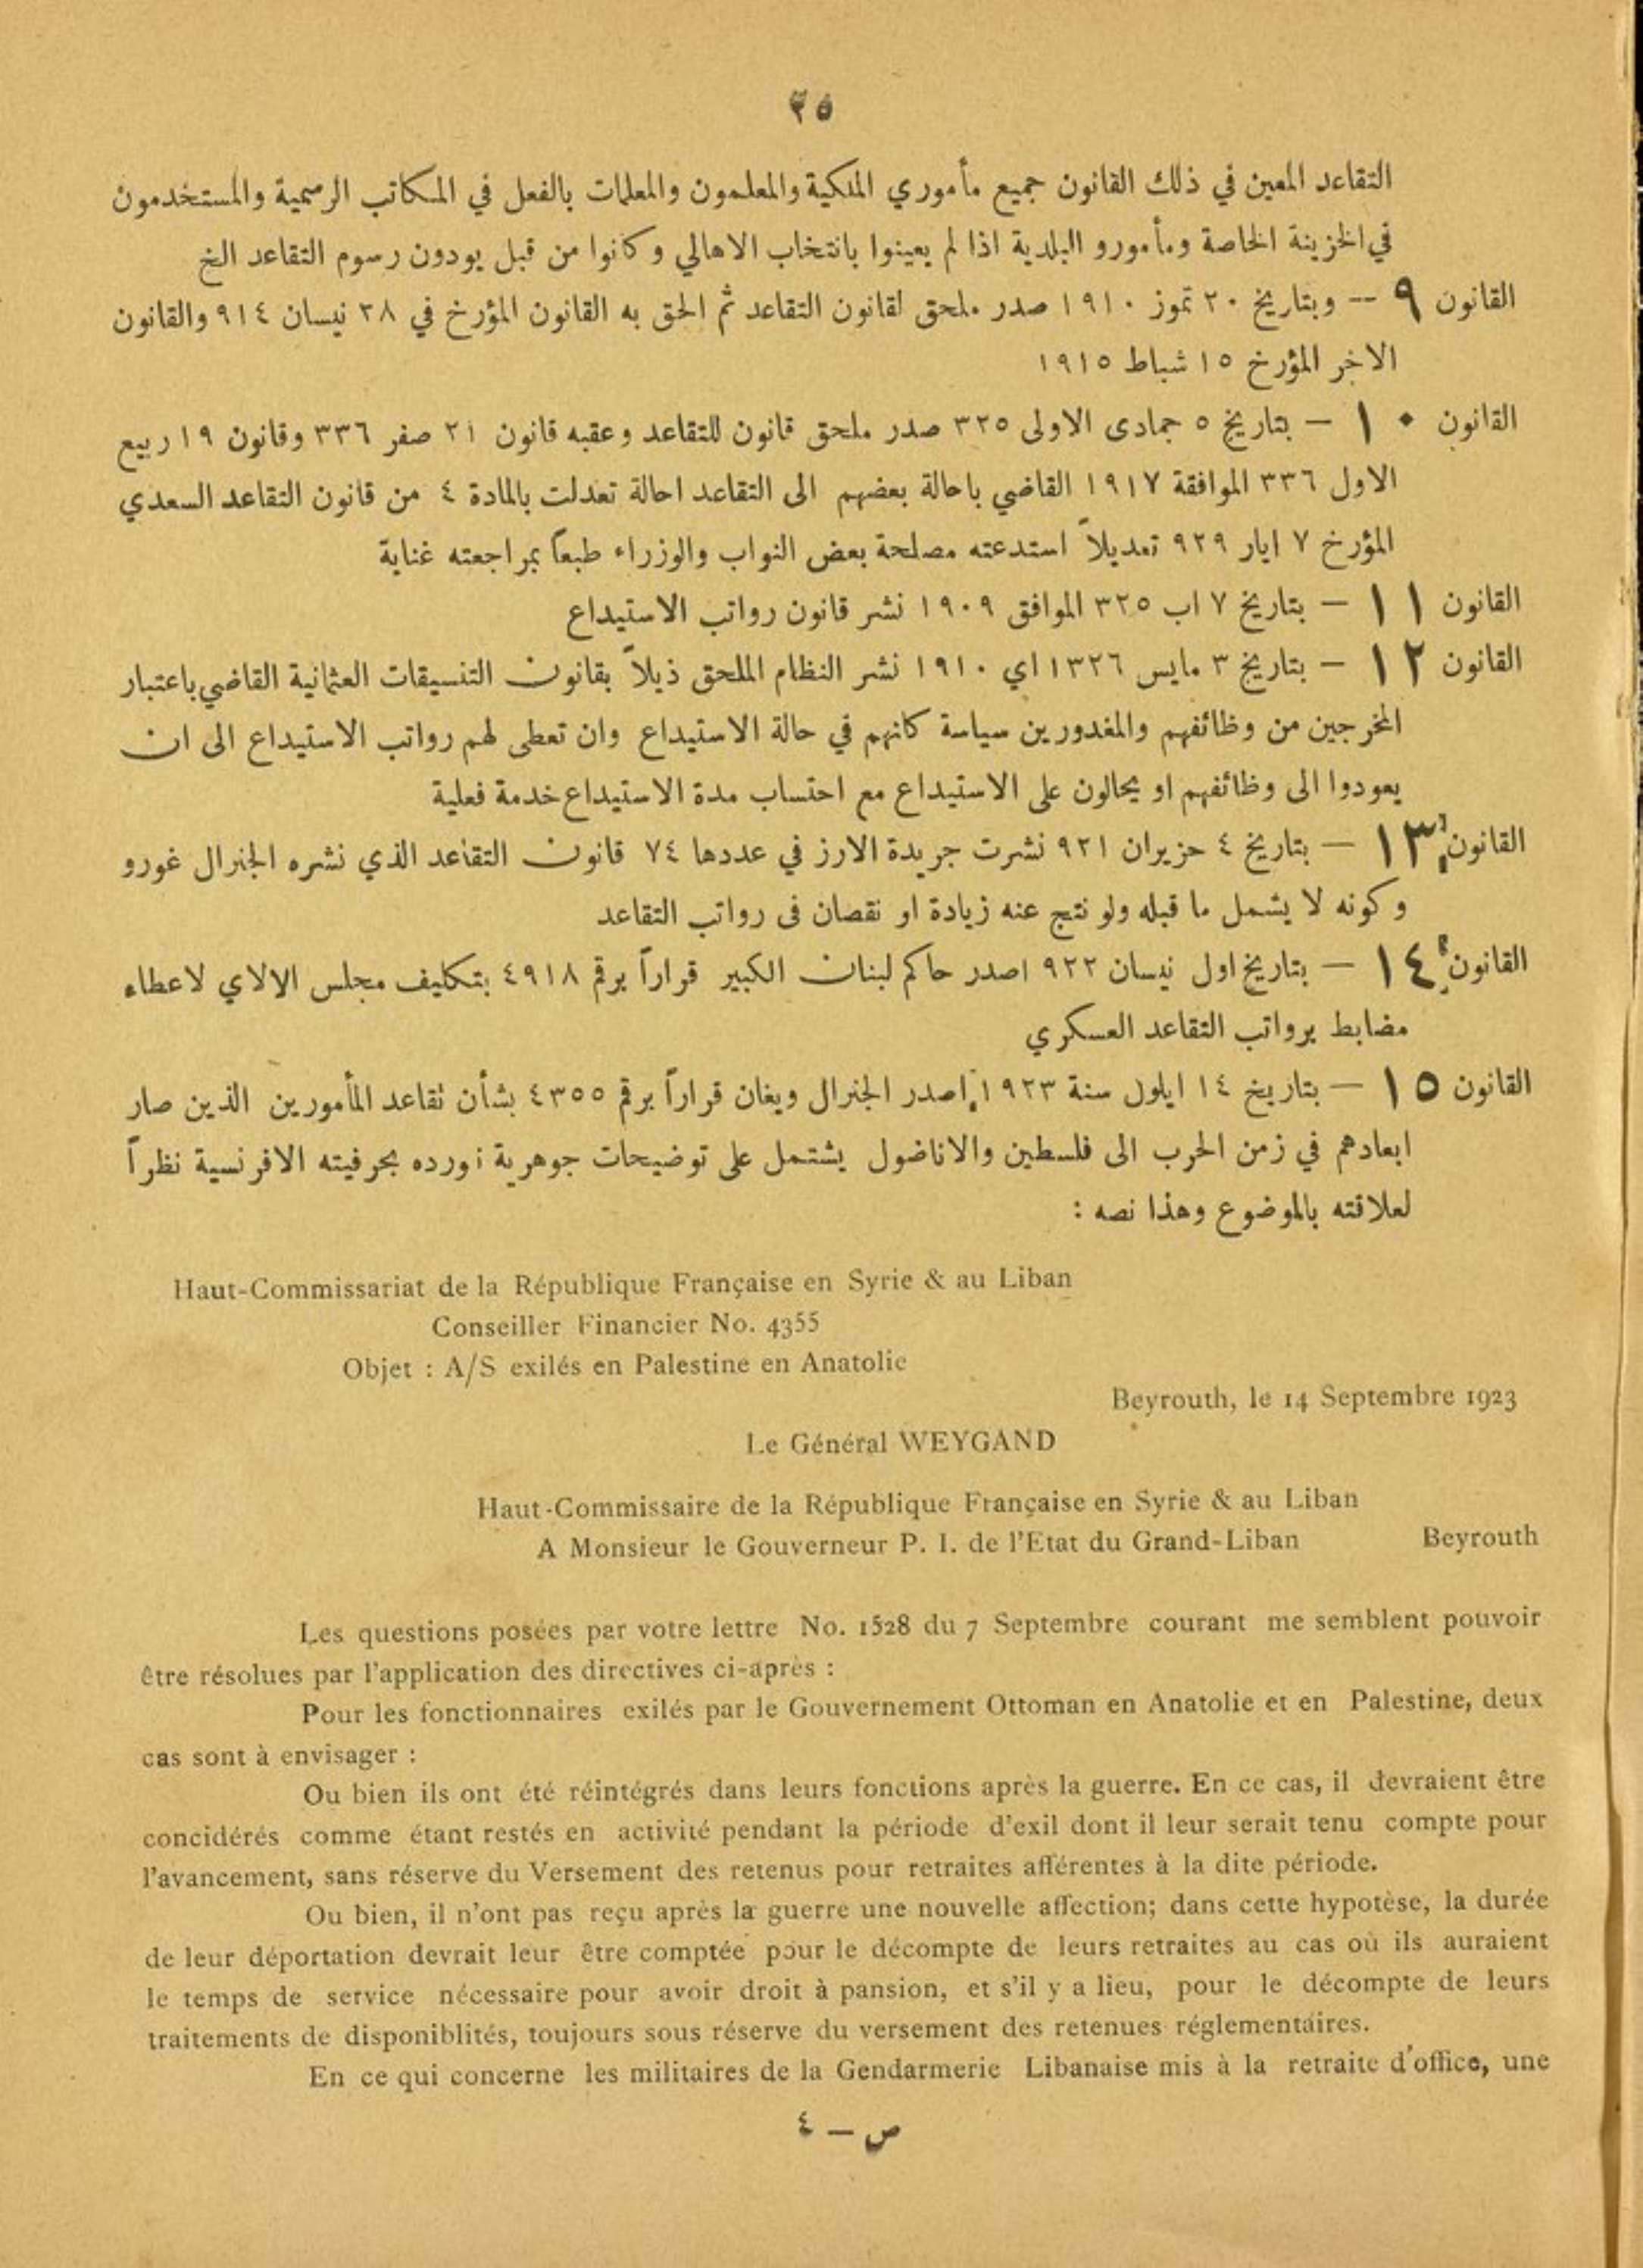 ٢٥
التقاعد المعين في ذلك القانون جميع مأموري الملكية والمعلمون والمعلمات بالفعل في المكاتب الرسمية والمستخدمون
في الخزينة الخاصة ومأمورو البلدية اذا لم يعينوا بانتخاب الاهالي وكانوا من قبل يودون رسوم التقاعد الخ
القانون ٩ -- وبتاريخ ٢٠ تموز ١٩١٠ صدر ملحق لقانون التقاعد ثم الحق به القانون المؤرخ في ٢٨ نيسان ٩١٤ والقانون
الاخر المؤرخ ١٥ شباط ١٩١٥
القانون ١٠ – بتاريخ ٥ جمادى الاولى ٣٢٥ صدر ملحق قانون للتقاعد وعقبه قانون ٢١ صفر ٣٣٦ وقانون ١٩ ربيع
الاول ٣٣٦ الموافقة ١٩١٧ القاضي باحالة بعضهم الى التقاعد احالة تعدلت بالمادة ٤ من قانون التقاعد السعدي
المؤرخ ٧ ايار ٩٢٩ تعديلاً استدعته مصلحة بعض النواب والوزراء طبعاً بمراجعته غناية
القانون ١١ – بتاريخ ٧ اب ٣٢٥ الموافق ١٩٠٩ نشر قانون رواتب الاستيداع
القانون ١٢ – بتاريخ ٣ مايس ١٣٢٦ اي ١٩١٠ نشر النظام الملحق ذيلاً بقانون التنسيقات العثمانية القاضي باعتبار
المخرجين من وظائفهم والمغدورين سياسة كانهم في حالة الاستيداع وان تعطى لهم رواتب الاستيداع الى ان
يعودوا الى وظائفهم او يحالون على الاستيداع مع احتساب مدة الاستيداع خدمة فعلية
القانون ١٣ – بتاريخ ٤ حزيران ٩٢١ نشرت جريدة الارز في عددها ٧٤ قانون التقاعد الذي نشره الجنرال غورو
وكونه لا يشمل ما قبله ولو نتج عنه زيادة او نقصان فى رواتب التقاعد
القانون ١٤ – بتاريخ اول نيسان ٩٢٢ اصدر حاكم لبنان الكبير قراراً برقم ٤٩١٨ بتكليف مجلس الالاي لاعطاء
مضابط برواتب التقاعد العسكري
القانون ١٥ – بتاريخ ١٤ ايلول سنة ١٩٢٣ اصدر الجنرال ويغان قراراً برقم ٤٣٥٥ بشأن تقاعد المأمورين الذين صار
ابعادهم في زمن الحرب الى فلسطين والاناضول يشتمل على توضيحات جوهرية نورده بحرفيته الافرنسية نظراً
لعلاقته بالموضوع وهذا نصه :
Haut-Commissariat de la République Française en Syrie & au Liban
Conseiller Financier No. 4355
Objet : A/S exilés en Palestine en Anatolie
Beyrouth, le 14 Septembre 1923
Le Général WEYGAND
Haut-Commissaire de la République Française en Syrie & au Liban
A Monsieur le Gouverneur P. I. de l'Etat du Grand-Liban Beyrouth
Les questions posées par votre lettre No. 1528 du 7 Septembre courant me semblent pouvoir
être résolues par l'application des directives ci-après :
Pour les fonctionnaires exilés par le Gouvernement Ottoman en Anatolie et en Palestine, deux
cas sont à envisager :
Ou bien ils ont été réintégrés dans leurs fonctions après la guerre. En ce cas, il devraient être
concidérés comme étant restés en activité pendant la période d'exil dont il leur serait tenu compte pour
l'avancement, sans réserve du Versement des retenus pour retraites afférentes à la dite période.
Ou bien, il n'ont pas reçu après la guerre une nouvelle affection; dans cette hypotèse, la durée
de leur déportation devrait leur être comptée pour le décompte de leurs retraites au cas où ils auraient
le temps de service nécessaire pour avoir droit à pansion, et s'il y a lieu, pour le décompte de leurs
traitements de disponiblités, toujours sous réserve du versement des retenues réglementaires.
En ce qui concerne les militaires de la Gendarmerie Libanaise mis à la retraite d'office, une
ص – ٤